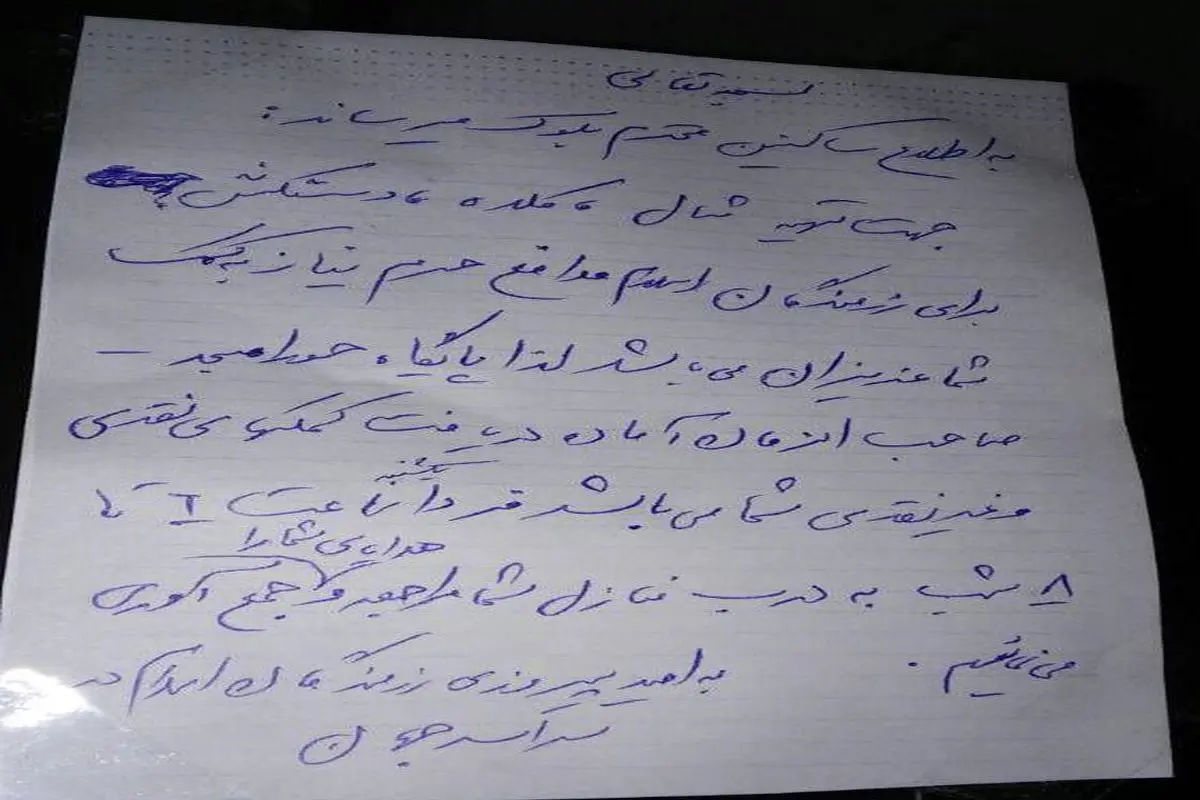 بسمه تعالی
به اطلاع ساکنین محترم بلوک میرساند:
جهت تهیه شال و کلاه و دستکش
برای رزمندگان اسلام مدافع حرم نیاز به کمک
شما عزیزان می باشد لذا پایگاه خواهران مسجد
صاحب الزمان آماده دریافت کمکهای نقدی
و غیر نقدی شما می باشد فردا یکشنبه ساعت ۶ تا
۸ شب به درب منازل شما مراجعه و هدایای شما را جمع آوری
می نمائیم. به امید پیروزی رزمندگان اسلام در
سراسر جهان